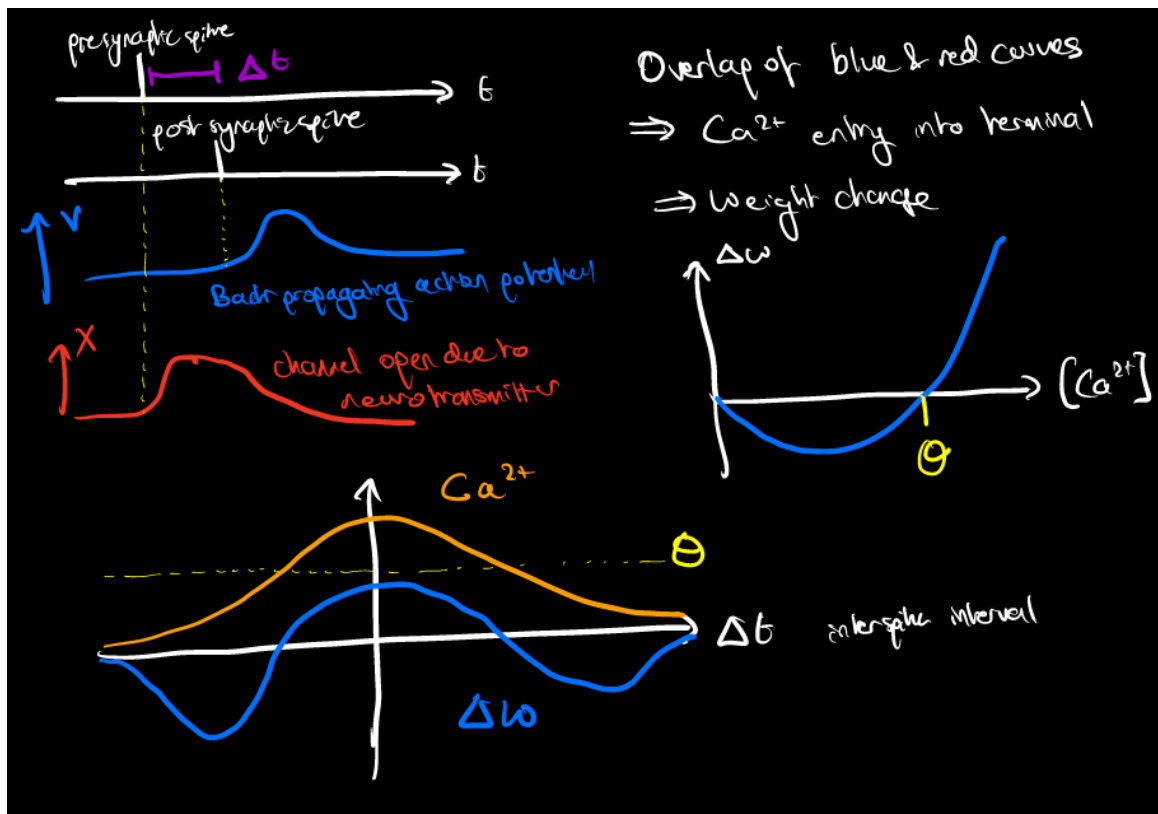 presynaptic spike
Δt
t
post synaptic spike
t
V
Back propagating action potential
X
channel open due to
neurotransmitter
Overlap of blue & red curves
⇒ Ca²⁺ entry into terminal
⇒ Weight change
Δw
[Ca²⁺]
θ
Ca²⁺
θ
Δt interspike interval
Δw